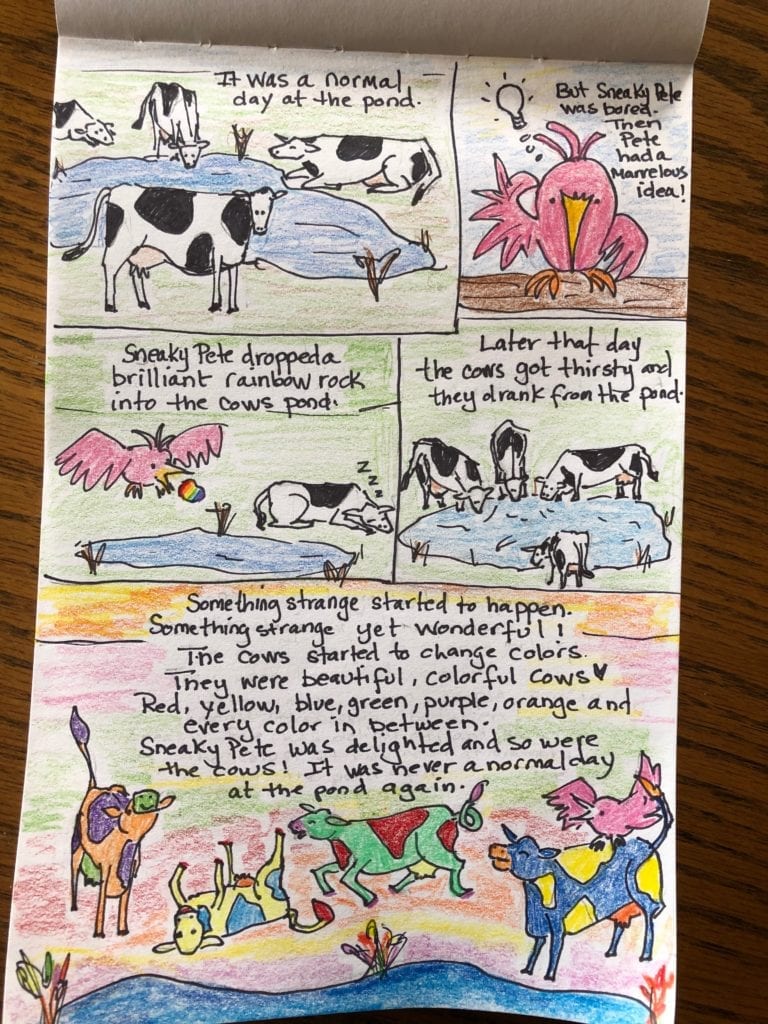 It was a normal
day at the pond.
But Sneaky Pete
was bored.
Then
Pete
had a
Marvelous
idea!
Sneaky Pete dropped a
brilliant rainbow rock
into the cows pond.
Later that day
the cows got thirsty and
they drank from the pond.
z
z
z
Something strange started to happen.
Something strange yet wonderful!
The cows started to change colors.
They were beautiful, colorful cows♥
Red, yellow, blue, green, purple, orange and
every color in between.
Sneaky Pete was delighted and so were
the cows! It was never a normal day
at the pond again.